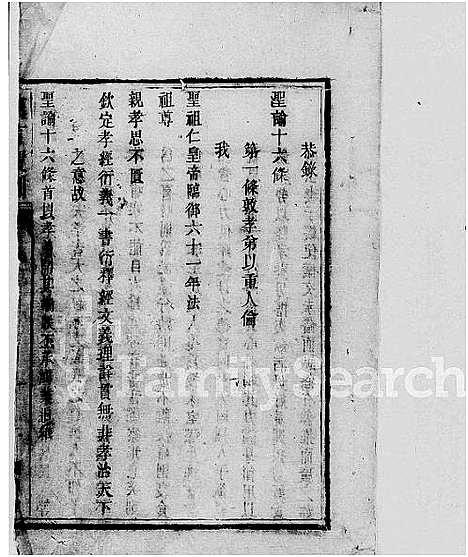 恭錄
聖諭十六條
第一條敦孝弟以重人倫
我
聖祖仁皇帝臨御六十一年法
祖尊
親孝思不匱
欽定孝經衍義一書衍釋經文義理詳貫無非孝治天下
之意故
聖諭十六條首以孝
FamilySearch